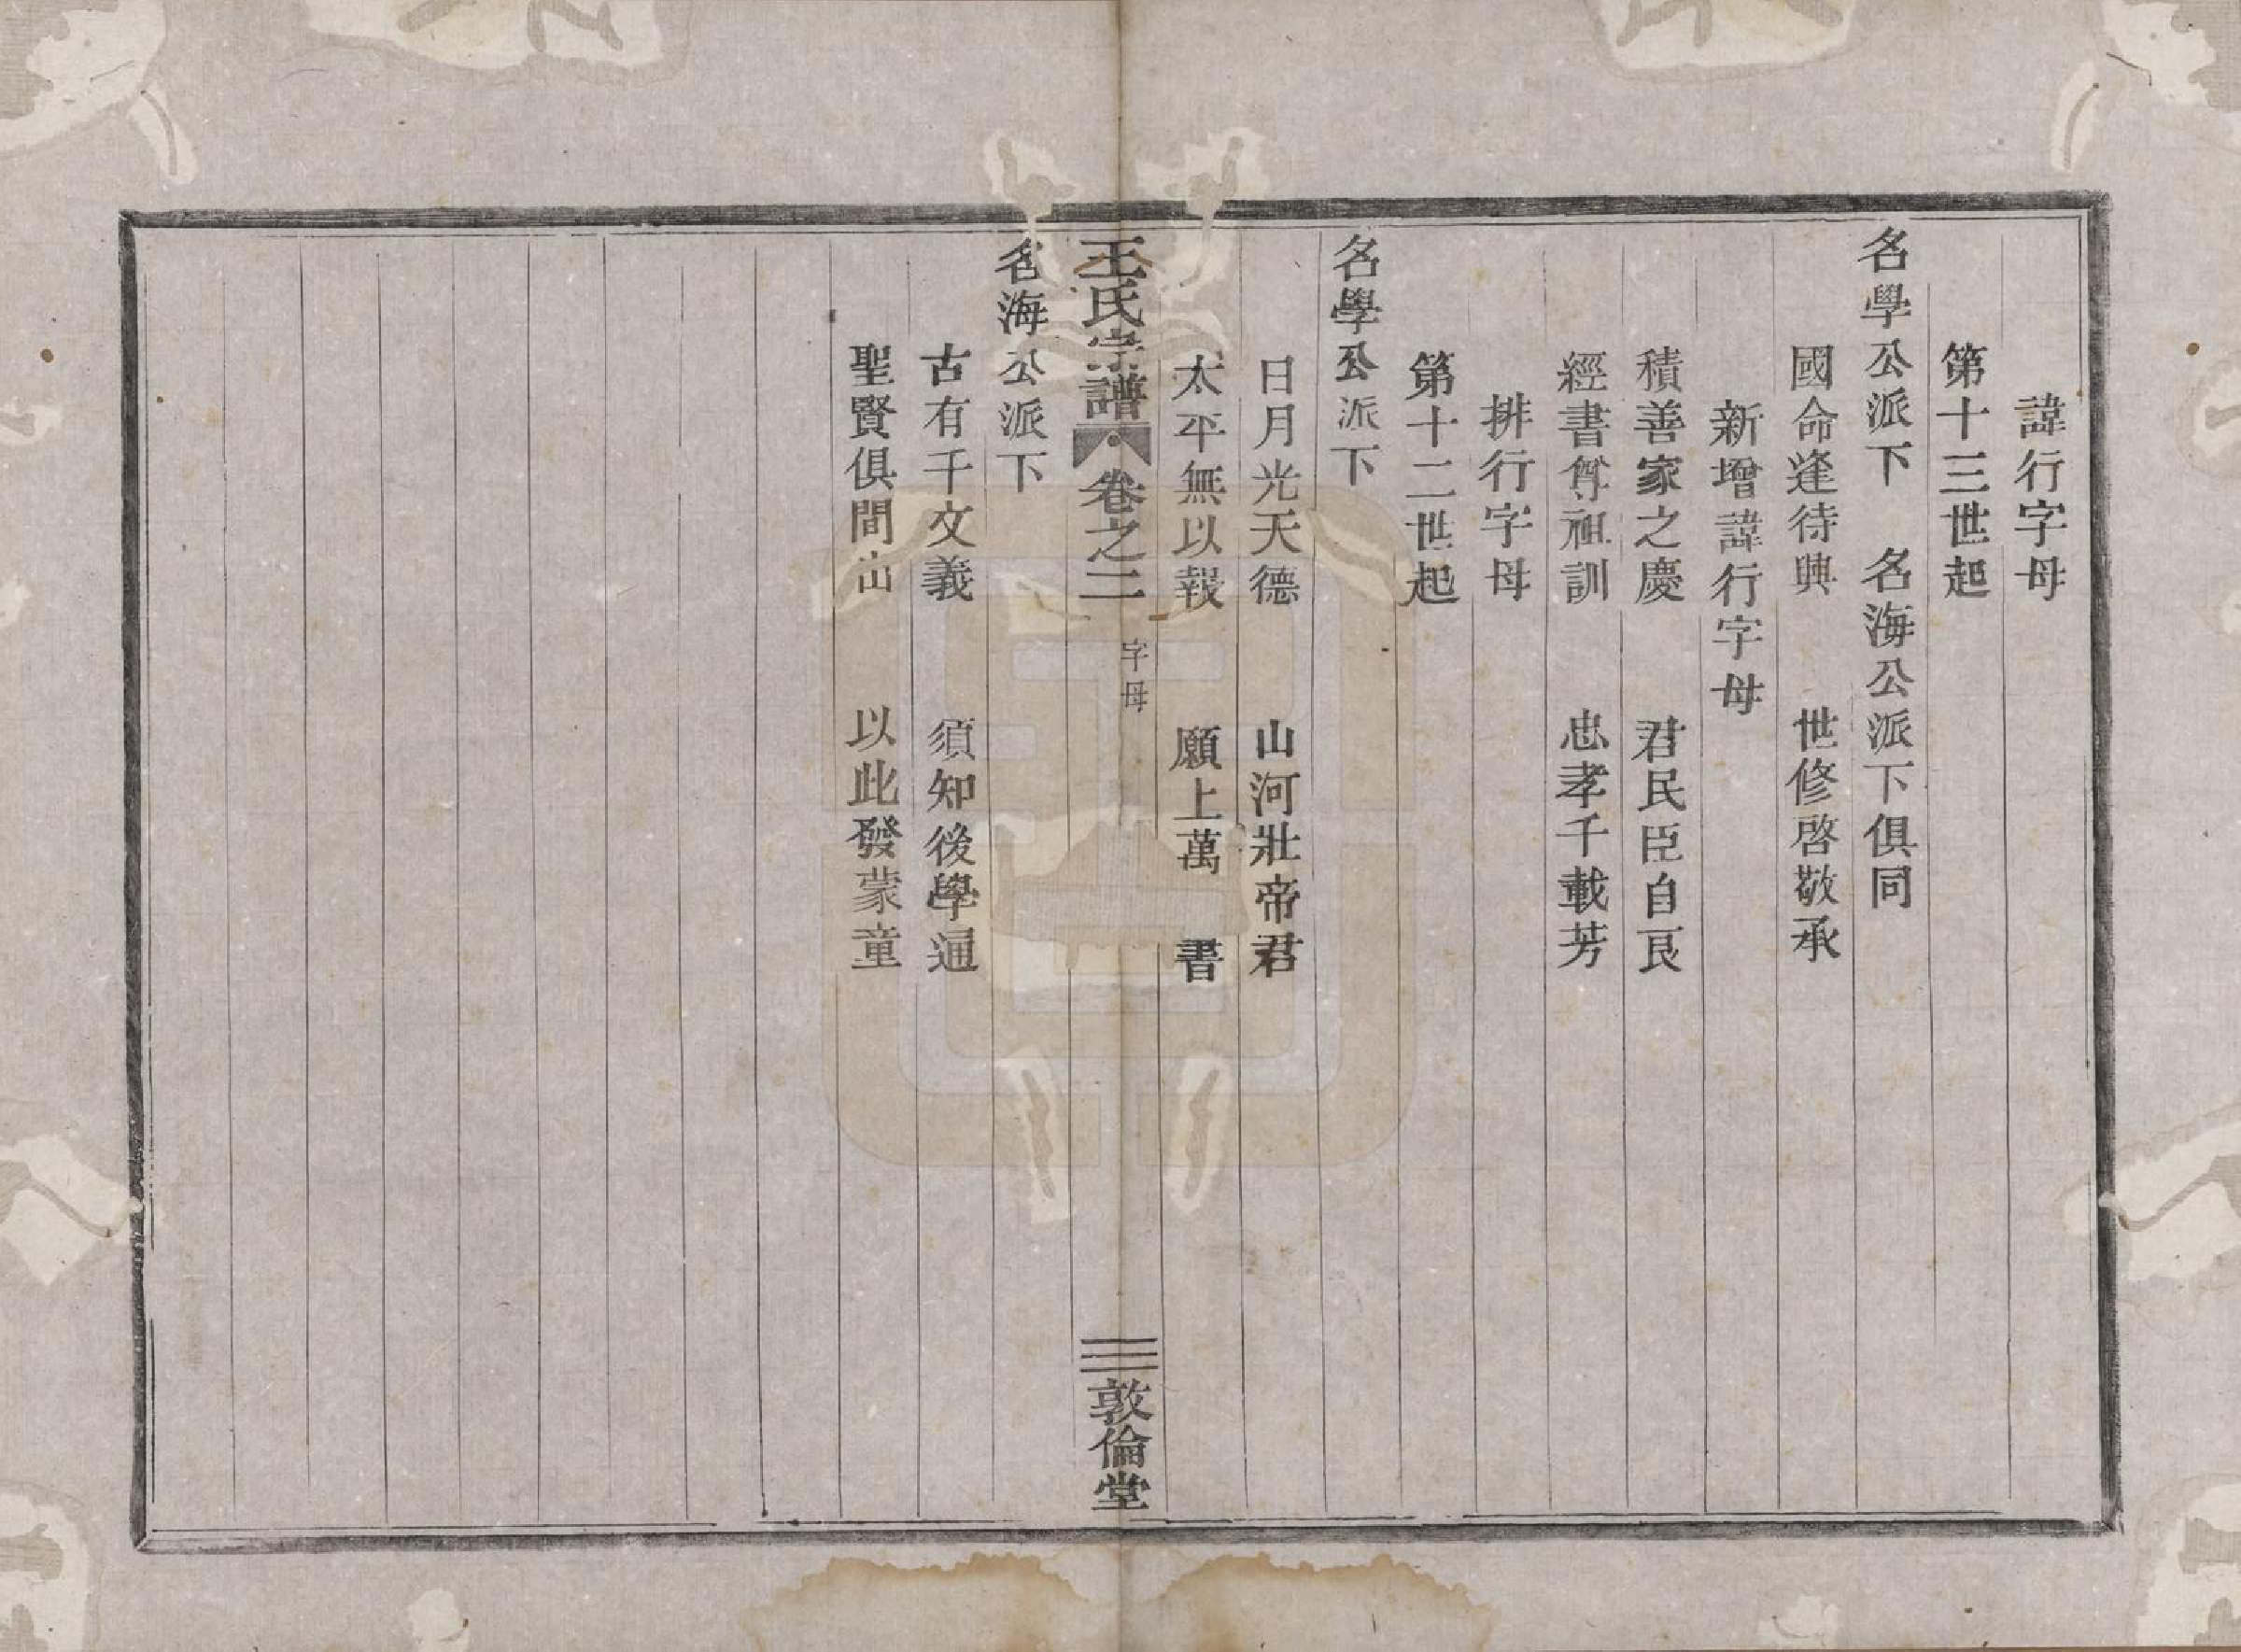 諱行字母
第十三世起
名學公派下　名海公派下俱同
國命逢待興　世修啓敬承
新增諱行字母
積善家之慶　君民臣自良
經書尊祖訓　忠孝千載芳
排行字母
第十二世起
名學公派下
日月光天德　山河壯帝君
太平無以報　願上萬　書
王氏宗譜　卷之二　字母　三　敦倫堂
名海公派下
古有千文義　須知後學通
聖賢俱間出　以此發蒙童